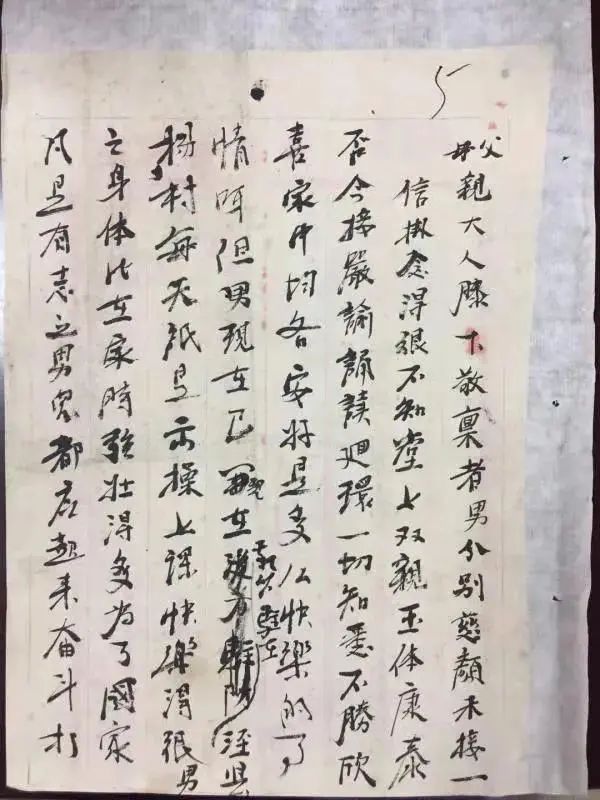 5
父母親大人膝下敬禀者男分别慈顏未接一
信掛念得很不知堂上双親玉体康泰
否今接嚴諭誦讀廻環一切知悉不勝欣
喜家中均各安好是多么快樂的事
情呀但男現在已 在 涇县
楊村每天紙是示操上課快樂得很男
之身体比在家時強壮得多为了國家
凡是有志之男兒都应起来奋斗打